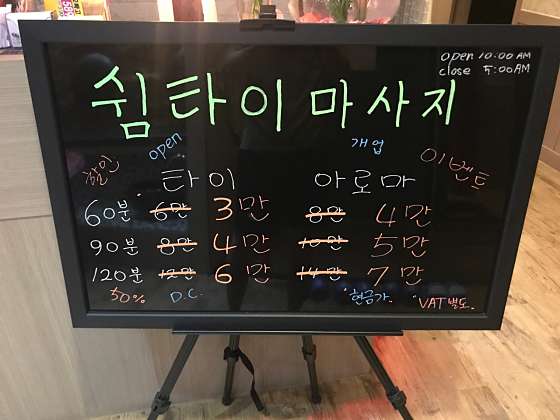 open 10:00 AM
close 5:00 AM
쉼타이마사지
할인 open 개업 이벤트
타이 아로마
60분 6만 3만 8만 4만
90분 8만 4만 10만 5만
120분 12만 6만 14만 7만
50% D.C. "현금가. "VAT별도.